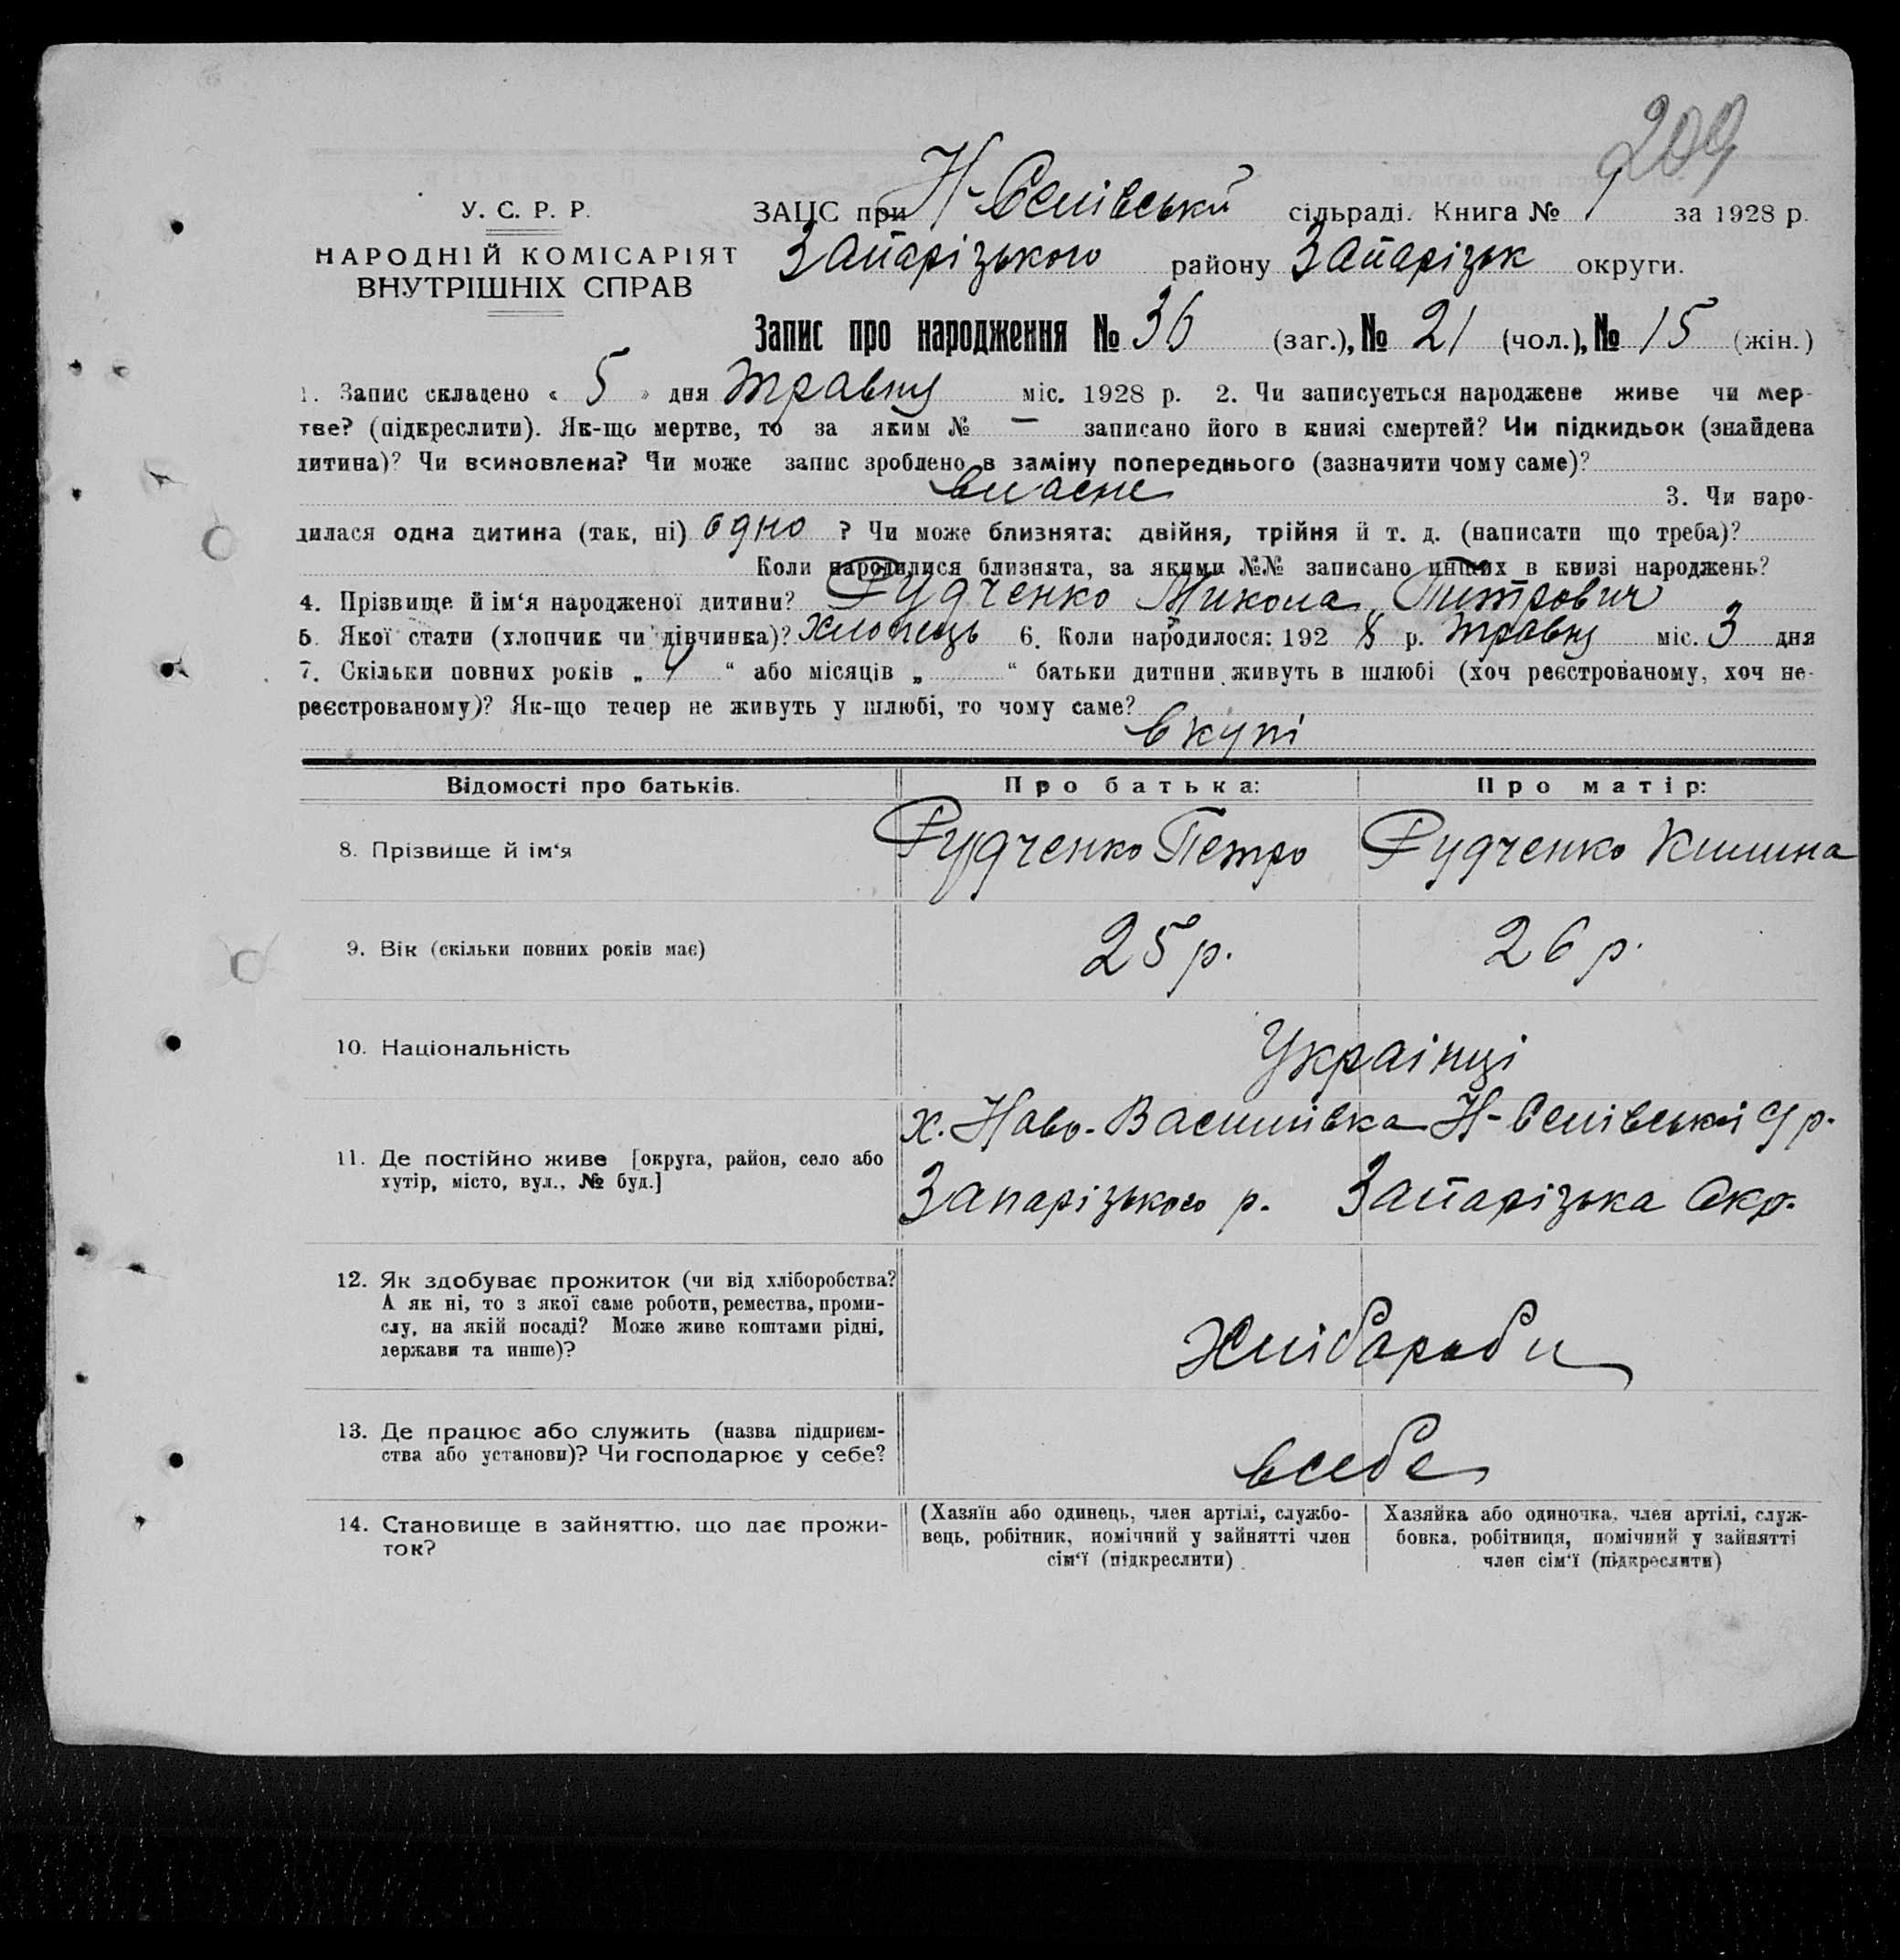 209
У. С. Р. Р.
НАРОДНІЙ КОМІСАРІЯТ
ВНУТРІШНІХ СПРАВ
ЗАЦС при Н-Єлнівській сільраді. Книга № 1 за 1928 р.
Запарізького району Запарізьк округи.
Запис про народження № 36 (заг.), № 21 (чол.), № 15 (жін.)
1. Запис складено « 5 » дня травня міс. 1928 р. 2. Чи записується народжене живе чи мер-
тве? (підкреслити). Як-що мертве, то за яким № — записано його в книзі смертей? Чи підкидьок (знайдена
дитина)? Чи всиновлена? Чи може запис зроблено в заміну попереднього (зазначити чому саме)?
власне 3. Чи наро-
дилася одна дитина (так, ні) одно ? Чи може близнята: двійня, трійня й т. д. (написати що треба)?
Коли народилися близнята, за якими №№ записано инших в книзі народжень?
4. Прізвище й ім'я народженої дитини? Рудченко Микола Питрович
5. Якої стати (хлопчик чи дівчинка)? Хлопець 6. Коли народилося: 1928 р. травня міс. 3 дня
7. Скільки повних років „ “ або місяців „ “ батьки дитини живуть в шлюбі (хоч реєстрованому, хоч не-
реєстрованому)? Як-що тепер не живуть у шлюбі, то чому саме?
вкупі
Відомості про батьків. Про батька: Про матір:
8. Прізвище й ім'я Рудченко Петро Рудченко Килина
9. Вік (скільки повних років має) 25 р. 26 р.
10. Національність Украінці
11. Де постійно живе [округа, район, село або
хутір, місто, вул., № буд.]
х. Наво-Василівка Н- р.
Запарізького р. Запарізька Окр.
12. Як здобуває прожиток (чи від хліборобства?
А як ні, то з якої саме роботи, ремества, проми-
слу, на якій посаді? Може живе коштами рідні,
держави та инше)?
Хлібароби
13. Де працює або служить (назва підприєм-
ства або установи)? Чи господарює у себе?
всебе
14. Становище в зайняттю, що дає прожи-
ток?
(Хазяїн або одинець, член артілі, службо-
вець, робітник, помічний у зайнятті член
сім'ї (підкреслити)
Хазяйка або одиночка, член артілі, служ-
бовка, робітниця, помічний у зайнятті
член сім'ї (підкреслити)